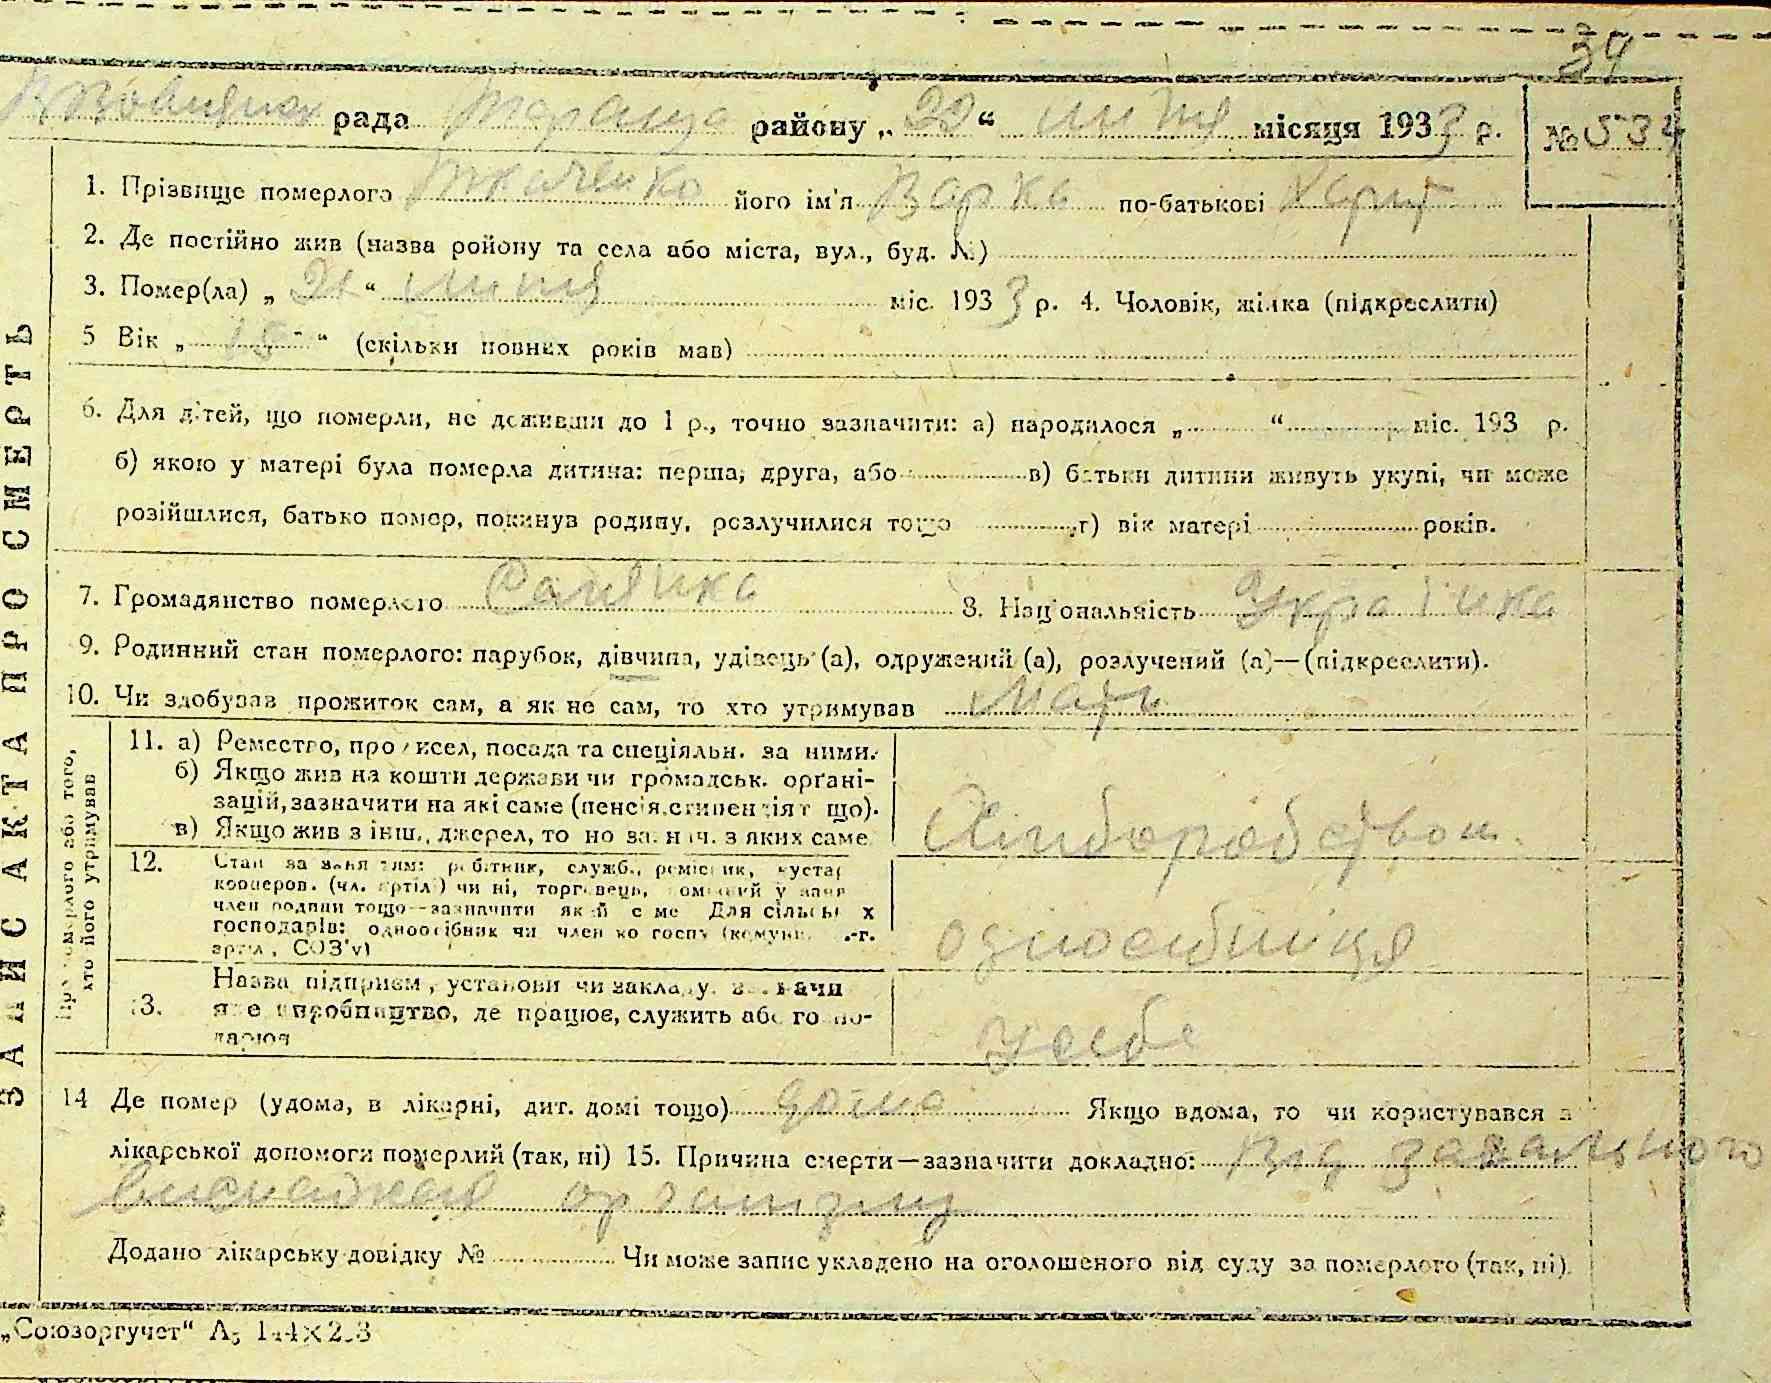 34
рада Тараща району „22“ липня місяця 1933 р. № 534
1. Прізвище померлого Ткаченко його ім'я Варка по-батькові Харит
2. Де постійно жив (назва ройону та села або міста, вул., буд. №)
3. Помер(ла) „21“ липня міс. 1933 р. 4. Чоловік, жінка (підкреслити)
5 Вік „15“ (скільки повних років мав)
6. Для дітей, що померли, не доживши до 1 р., точно зазначити: а) народилося „ “ міс. 193 р.
б) якою у матері була померла дитина: перша, друга, або в) батьки дитини живуть укупі, чи може
розійшлися, батько помер, покинув родину, розлучилися тощо г) вік матері років.
7. Громадянство померлого 8. Національність Українка
9. Родинний стан померлого: парубок, дівчина, удівець (а), одружений (а), розлучений (а)—(підкреслити).
10. Чи здобував прожиток сам, а як не сам, то хто утримував мать
ЗАПИС АКТА ПРО СМЕРТЬ
Про померлого або того,
хто його утримував
11. а) Ремество, промисел, посада та спеціяльн. за ними.
б) Якщо жив на кошти держави чи громадськ. орґані-
зацій, зазначити на які саме (пенсія, стипендія т що).
в) Якщо жив з інш. джерел, то но зазнач. з яких саме
Хліборобством
12. Стан за заняттям: робітник, служб., ремісник, кустар
кооперов. (чл. артілі) чи ні, торговець,
член родини тощо—зазначити який саме Для сільськ х
господарів: одноосібник чи член ко госпу
СОЗ'у)
одноосібниця
13. Назва підприєм, установи чи закладу,
виробництво, де працює, служить або госпо-
дарює
у себе
14 Де помер (удома, в лікарні, дит. домі тощо) дома Якщо вдома, то чи користувався з
лікарської допомоги померлий (так, ні) 15. Причина смерти—зазначити докладно: Від загального
виснаження організму
Додано лікарську довідку № Чи може запис укладено на оголошеного від суду за померлого (так, ні).
„Союзоргучет“